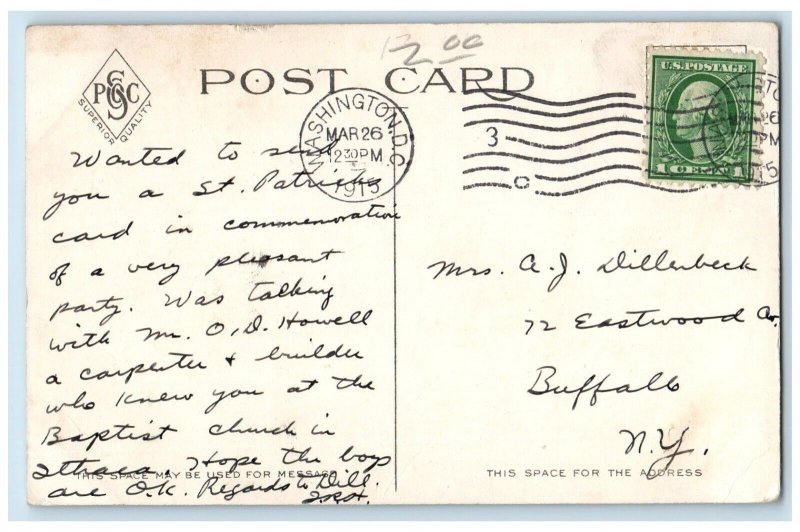 2.00
POST CARD
P S C
SUPERIOR QUALITY
WASHINGTON, D.C.
MAR 26
12 30 PM
1915
3
U.S. POSTAGE
1 CENT 1
Wanted to send
you a St. Patricks
card in commemoration
of a very pleasant
party. Was talking
with Mr. O. D. Howell
a carpenter + builder
who knew you at the
Baptist church in
Ithaca. Hope the boys
are O.K. Regards to Dill.
Mrs. A. J. Dillenbeck
72 Eastwood Av.
Buffalo
N.Y.
THIS SPACE MAY BE USED FOR MESSAGE
THIS SPACE FOR THE ADDRESS